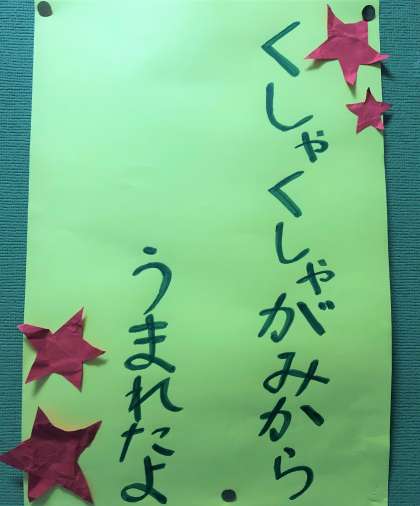 くしゃくしゃがみから
うまれたよ